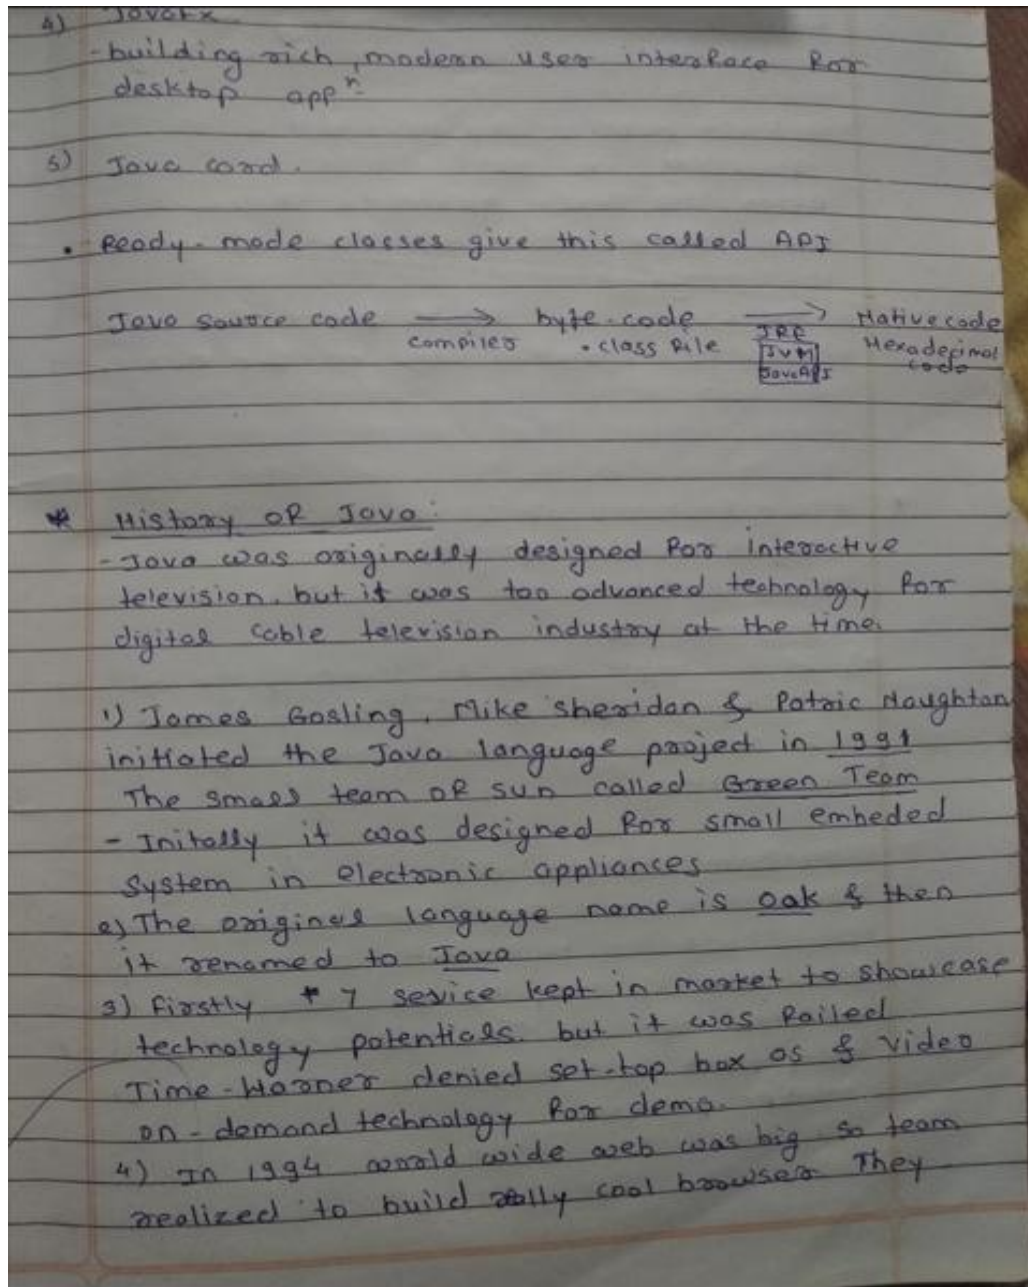 4) JavaFx
- building rich, modern user interface for
desktop appn
5) Java card.
• Ready-made classes give this called API
Java source code → byte-code → Native code
compiler .class file JRE Hexadecimal
JVM code
Java API
* History of Java:
- Java was originally designed for interactive
television, but it was too advanced technology for
digital cable television industry at the time.
1) James Gosling, Mike Sheridan & Patric Naughton
initiated the Java language project in 1991
The small team of sun called Green Team
- Initally it was designed for small embeded
system in electronic appliances
2) The original language name is oak & then
it renamed to Java
3) Firstly * 7 sevice kept in market to showcase
technology potentials. but it was failed
Time-Warner denied set-top box os & video
on-demand technology for demo.
4) In 1994 world wide web was big so team
realized to build really cool browser They